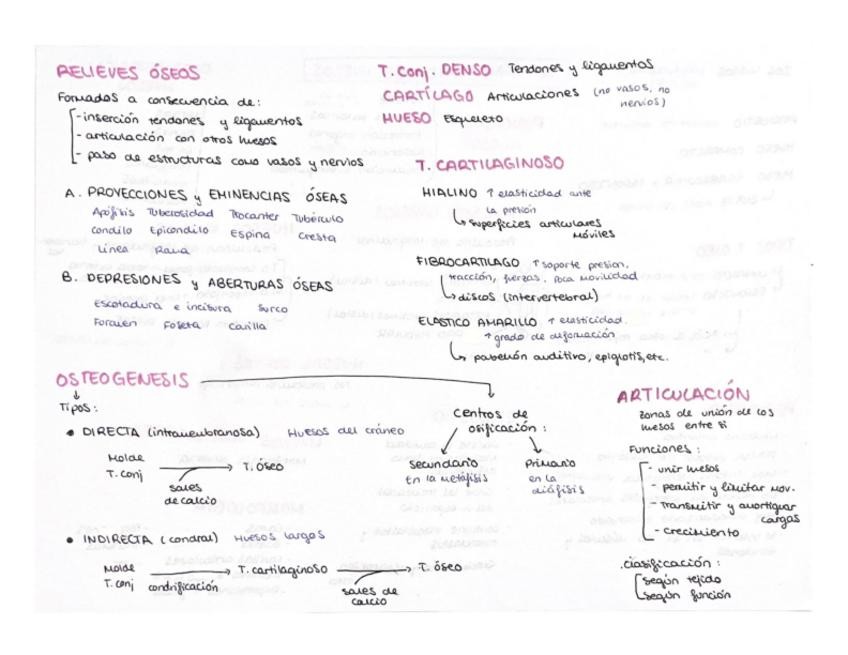 RELIEVES ÓSEOS
Formados a consecuencia de:
- inserción tendones y ligamentos
- articulación con otros huesos
- paso de estructuras como vasos y nervios
A. PROYECCIONES y EMINENCIAS ÓSEAS
Apófisis Tuberosidad Trocanter Tubérculo
condilo Epicondilo Espina Cresta
Línea Rama
B. DEPRESIONES y ABERTURAS ÓSEAS
Escotadura e incisura Surco
Foramen Foseta Cavilla
T. Conj. DENSO Tendones y ligamentos
CARTÍLAGO Articulaciones (no vasos, no
nervios)
HUESO Esqueleto
T. CARTILAGINOSO
HIALINO ↑ elasticidad ante
la presión
↳ superficies articulares
móviles
FIBROCARTILAGO ↑ soporte presion,
tracción, fuerzas, poca movilidad
↳ discos (intervertebral)
ELASTICO AMARILLO ↑ elasticidad.
↑ grado de deformación
↳ pabellón auditivo, epiglotis, etc.
OSTEOGENESIS
↓
Tipos:
• DIRECTA (intramembranosa) Huesos del cráneo
Molde
T. conj → T. óseo
sales
de calcio
• INDIRECTA (condral) Huesos largos
Molde
T. conj → T. cartilaginoso → T. óseo
condrificación
sales de
calcio
Centros de
osificación:
Secundario
en la metáfisis
Primario
en la
diáfisis
ARTICULACIÓN
zonas de unión de los
huesos entre si
Funciones:
- unir huesos
- permitir y limitar mov.
- Transmitir y amortiguar
cargas
- crecimiento
.clasificación:
según tejido
según función